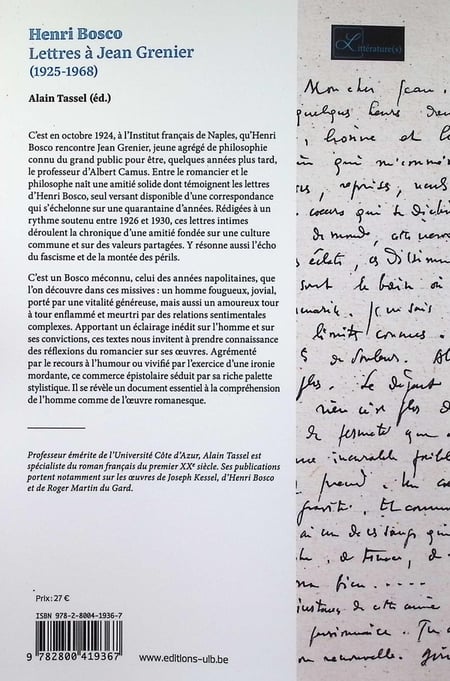 Henri Bosco
Lettres à Jean Grenier
(1925-1968)
Alain Tassel (éd.)
C'est en octobre 1924, à l'Institut français de Naples, qu'Henri
Bosco rencontre Jean Grenier, jeune agrégé de philosophie
connu du grand public pour être, quelques années plus tard,
le professeur d'Albert Camus. Entre le romancier et le
philosophe naît une amitié solide dont témoignent les lettres
d'Henri Bosco, seul versant disponible d'une correspondance
qui s'échelonne sur une quarantaine d'années. Rédigées à un
rythme soutenu entre 1926 et 1930, ces lettres intimes
déroulent la chronique d'une amitié fondée sur une culture
commune et sur des valeurs partagées. Y résonne aussi l'écho
du fascisme et de la montée des périls.
C'est un Bosco méconnu, celui des années napolitaines, que
l'on découvre dans ces missives : un homme fougueux, jovial,
porté par une vitalité généreuse, mais aussi un amoureux tour
à tour enflammé et meurtri par des relations sentimentales
complexes. Apportant un éclairage inédit sur l'homme et sur
ses convictions, ces textes nous invitent à prendre connaissance
des réflexions du romancier sur ses œuvres. Agrémenté
par le recours à l'humour ou vivifié par l'exercice d'une ironie
mordante, ce commerce épistolaire séduit par sa riche palette
stylistique. Il se révèle un document essentiel à la compréhension
de l'homme comme de l'œuvre romanesque.
Professeur émérite de l'Université Côte d'Azur, Alain Tassel est
spécialiste du roman français du premier XXe siècle. Ses publications
portent notamment sur les œuvres de Joseph Kessel, d'Henri Bosco
et de Roger Martin du Gard.
Prix : 27 €
ISBN 978-2-8004-1936-7
9 782800 419367
www.editions-ulb.be
Littérature(s)
Mon cher Jean,
quelques heures
reprises
de monde, cette
le bain
Je suis
limité connues.
de douleurs.
Le départ
rien
de fermeté que
une incurable
prend
gravité. Et
de France, de
bien .....
de cette année
pensionnaire. Tu